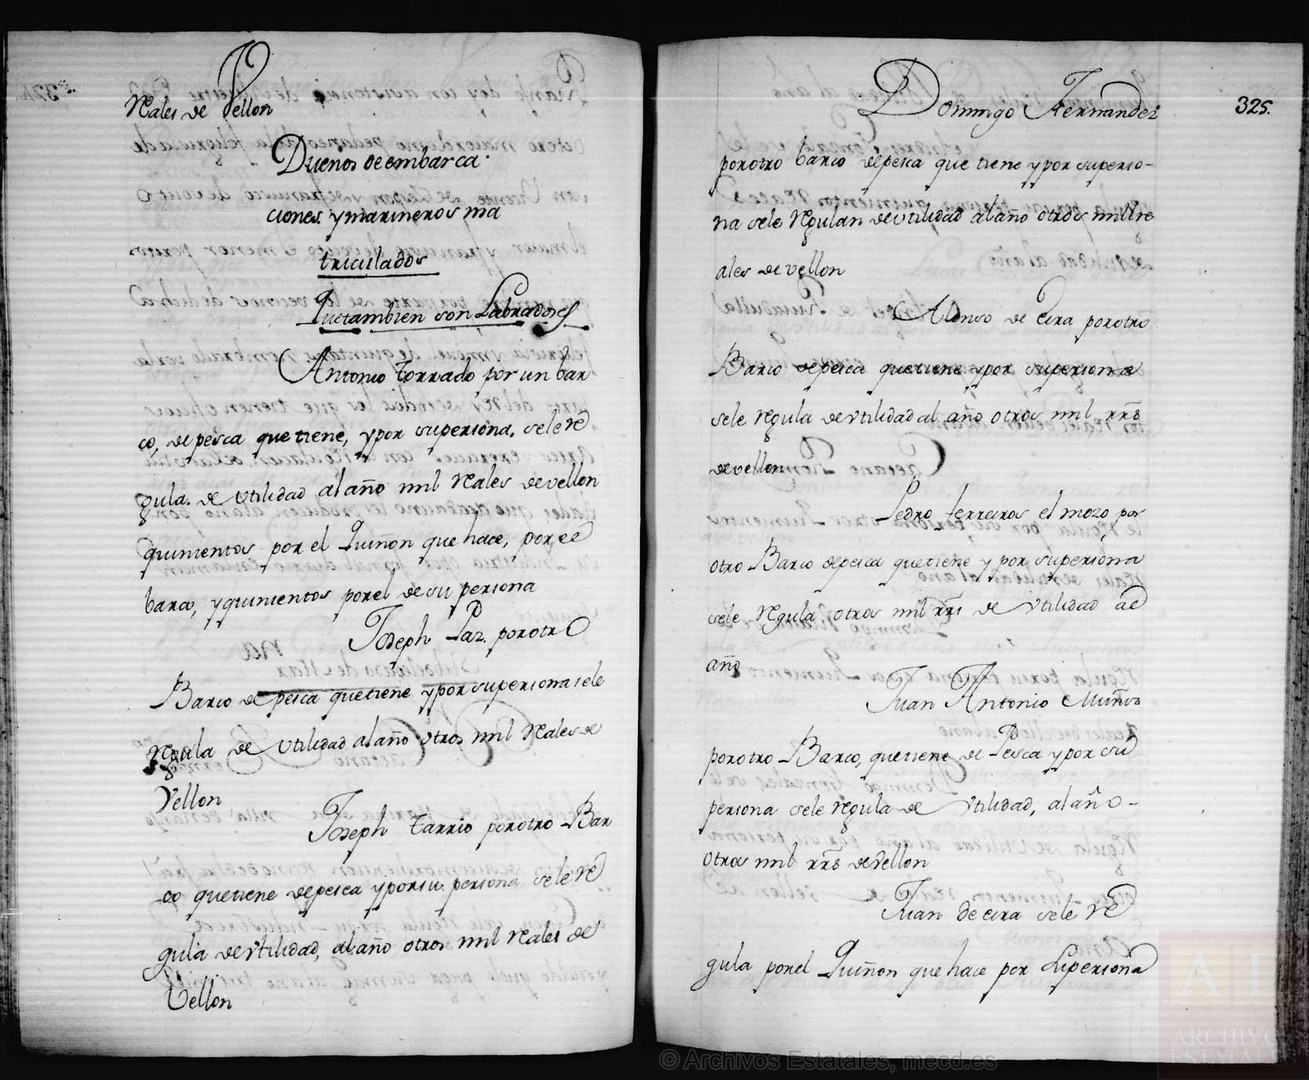 Reales de Vellon
Duenos de embarca-
ciones y marineros ma
triculados
Que tambien son Labradores
Antonio torrado por un bar
co, de pesca que tiene, y por su persona, se le re
gula de utilidad al año mil reales de vellon
quinientos por el Quiñon que hace, por el
barco, y quinientos por el de su persona
Joseph Paz por otro
Barco de pesca que tiene y por su persona se le
regula de Utilidad al año otros mil reales de
Vellon
Joseph tarrio por otro Bar
co que tiene de pesca y por su persona se le re
gula de Utilidad, al año otros mil reales de
Vellon
Domingo Fernandez
325.
por otro barco de pesca que tiene y por su perso-
na se le regulan de utilidad al año otros mill re
ales de vellon
Alonso de Cira por otro
Barco de pesca que tiene y por su persona
se le regula de Vtilidad al año otros mil rrs
de vellon
Pedro ferreiros el mozo por
otro Barco de pesca que tiene y por su persona
se le regula otros mil rrs de Vtilidad al
año
Juan Antonio Muños
por otro Barco, que tiene de Pesca y por su
persona se le regula de Vtilidad, al año-
otros mil rrs de Vellon
Juan de cira se le re
gula por el Quiñon que hace por su persona
© Archivos Estatales, mecd.es
AE
ARCHIVOS
ESTATALES